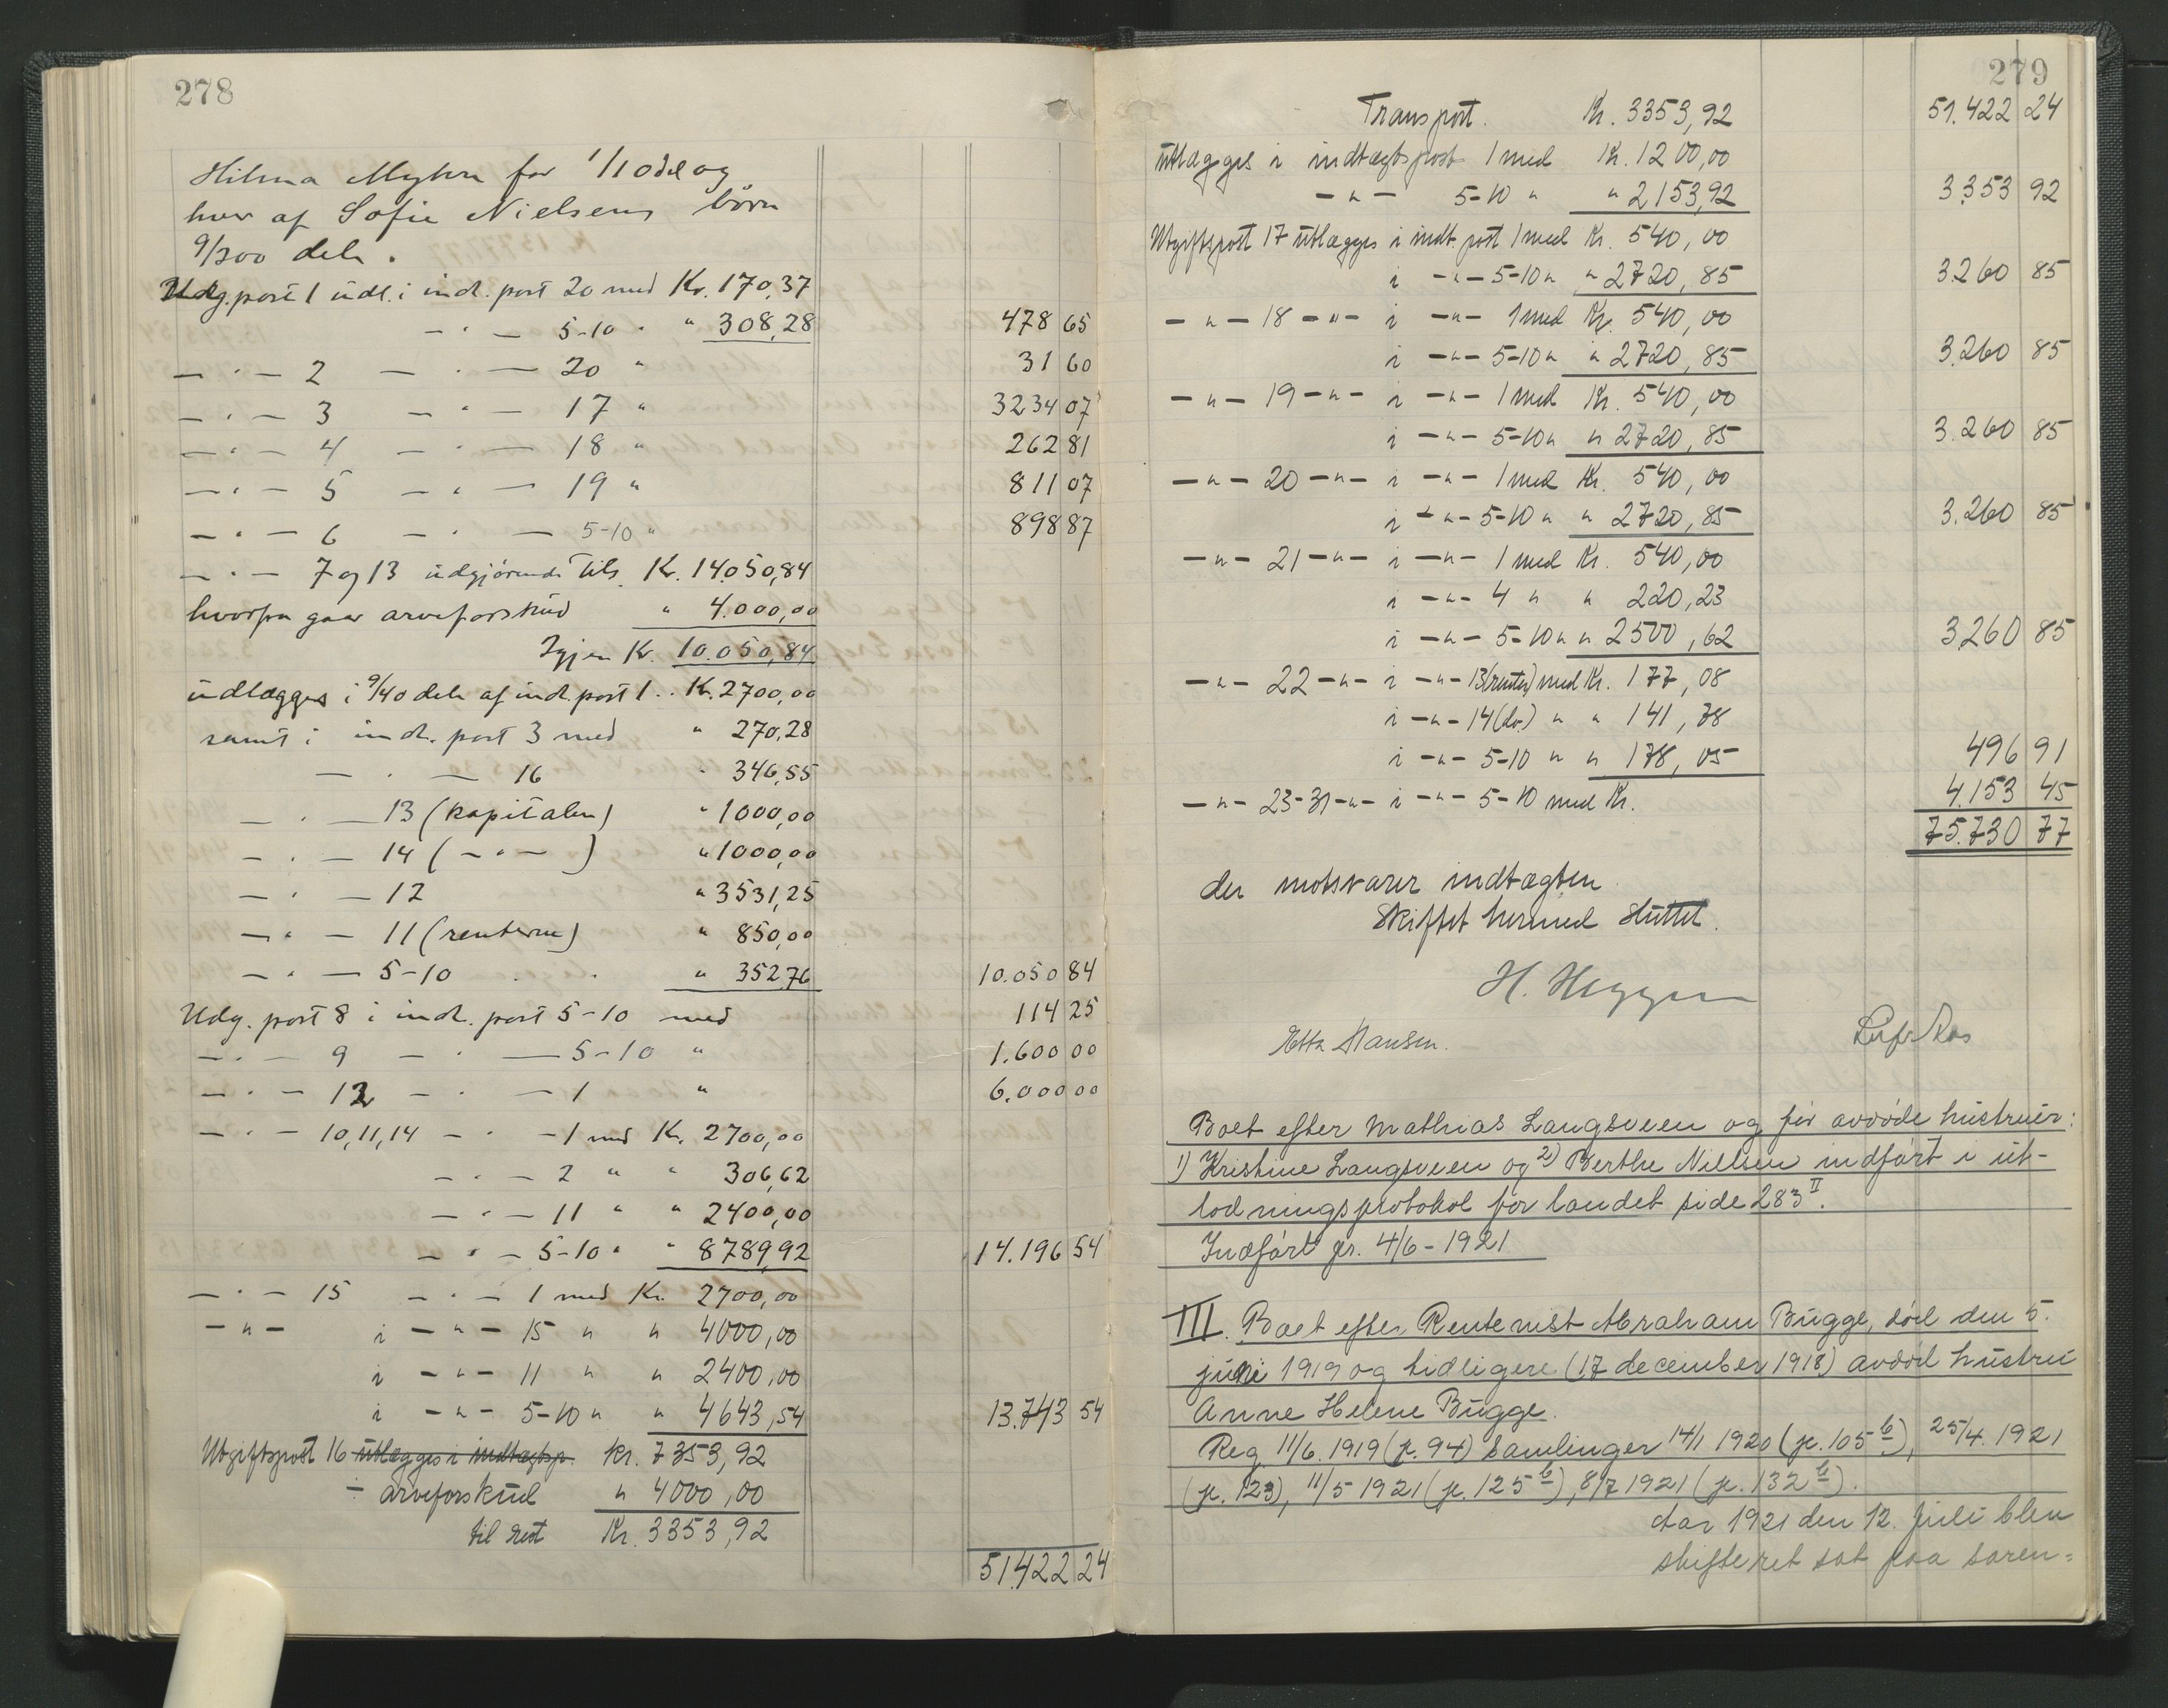 278
Hilma Myhre for 1/10 del og
hver af Sofie Nielsens börn
9/200 dele.
Udg. post 1 udl. i ind. post 20 med Kr. 170,37
— " — 5-10 " " 308,28 478 65
— " — 2 — " — 20 " 31 60
— " — 3 — " — 17 " 3234 07
— " — 4 — " — 18 " 262 81
— " — 5 — " — 19 " 811 07
— " — 6 — " — 5-10 " 898 87
— " — 7 og 13 udgjörende tils. Kr. 14.050,84
hvorfra gaar arveforskud " 4.000,00
Igjen Kr. 10.050,84
udlægges i 9/40 dele af ind. post 1 .. Kr. 2700,00
samt i ind. post 3 med " 270,28
— " — 16 " 346,55
— " — 13 (kapitalen) " 1000,00
— " — 14 ( — " — ) " 1000,00
— " — 12 " 3531,25
— " — 11 (renterne) " 850,00
— " — 5-10 " " 352,76 10.050 84
Udg. post 8 i ind. post 5-10 med 114 25
— " — 9 — " — 5-10 " 1.600 00
— " — 12 — " — 1 " 6.000 00
— " — 10, 11, 14 — " — 1 med Kr. 2700,00
— " — 2 " " 306,62
— " — 11 " " 2400,00
— " — 5-10 " " 8789,92 14.196 54
— " — 15 — " — 1 med Kr. 2700,00
— " — i — " — 15 " " 4000,00
i — " — 11 " " 2400,00
i — " — 5-10 " " 4643,54 13.743 54
Utgiftspost 16 utlægges i indtægtsp. Kr. 7353,92
÷ arveforskud " 4000,00
til rest Kr. 3353,92
51422 24
279
Transport. Kr. 3353,92 51.422 24
utlægges i indtægtspost 1 med Kr. 1200,00
— " — 5-10 " " 2153,92 3.353 92
Utgiftspost 17 utlægges i indt. post 1 med Kr. 540,00
i — " — 5-10 " " 2720,85 3.260 85
— " — 18 — " — i — " — 1 med Kr. 540,00
i — " — 5-10 " " 2720,85 3.260 85
— " — 19 — " — i — " — 1 med Kr. 540,00
i — " — 5-10 " " 2720,85 3.260 85
— " — 20 — " — i — " — 1 med Kr. 540,00
i — " — 5-10 " " 2720,85 3.260 85
— " — 21 — " — i — " — 1 med Kr. 540,00
i — " — 4 " " 220,23
i — " — 5-10 " " 2500,62 3260 85
— " — 22 — " — i — " — 13 (renter) med Kr. 177,08
i — " — 14 (do.) " " 141,78
i — " — 5-10 " " 178,05 496 91
— " — 23-31 — " — i — " — 5-10 med Kr. 4.153 45
75.730 77
der motsvarer indtægten.
Skiftet hermed sluttet.
H. Heggen
Hansen.
Boet efter Mathias Langsveen og før avdøde hustruer:
1) Kristine Langsveen og 2) Berthe Nielsen indført i ut-
lodningsprotokol for landet side 283 II.
Indført pr. 4/6 - 1921
III. Boet efter Rentenist Abraham Bugge, død den 5.
juni 1919 og tidligere (17 december 1918) avdød hustru
Anne Helene Bugge.
Reg. 11/6. 1919 (p. 94) Samlinger 14/1 1920 (p. 105 b), 25/4. 1921
(p. 123), 11/5 1921 (p. 125 b), 8/7 1921 (p. 132 b).
Aar 1921 den 12. juli blev
skifteret sat paa soren=